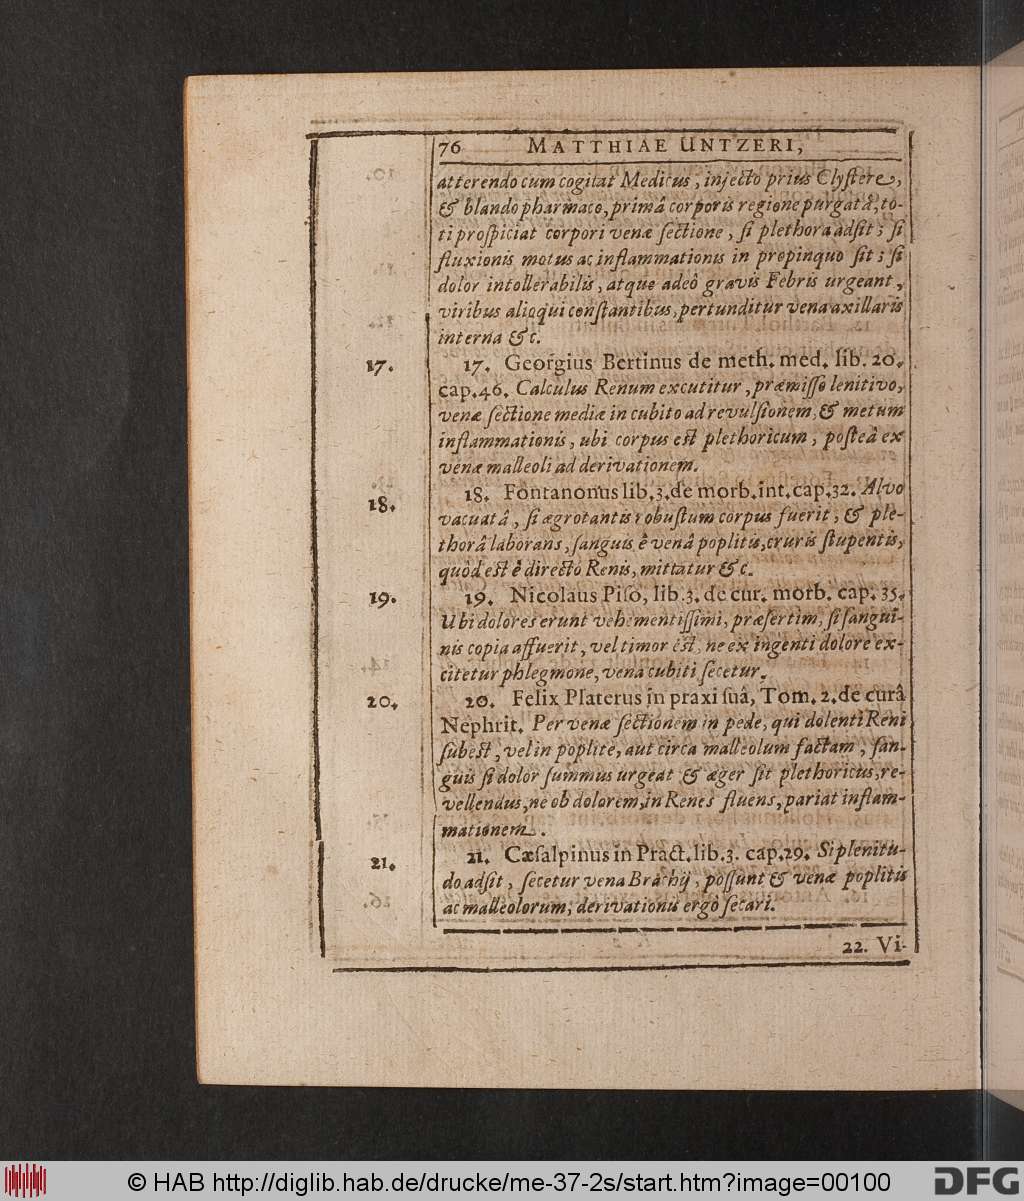 76 MATTHIAE UNTZERI,
atterendo cum cogitat Medicus, injecto prius Clystere,
& blando pharmaco, primâ corporis regione purgatâ, to-
ti prospiciat corpori venæ sectione, si plethora adsit; si
fluxionis motus ac inflammationis in propinquo sit; si
dolor intollerabilis, atque adeò gravis Febris urgeant,
viribus alioqui constantibus, pertunditur vena axillaris
interna &c.
17. 17. Georgius Bertinus de meth. med. lib. 20.
cap. 46. Calculus Renum excutitur, præmisso lenitivo,
venæ sectione mediæ in cubito ad revulsionem, & metum
inflammationis, ubi corpus est plethoricum, posteà ex
venæ malleoli ad derivationem.
18. 18. Fontanonus lib. 3. de morb. int. cap. 32. Alvo
vacuatâ, si ægrotantis robustum corpus fuerit, & ple-
thorâ laborans, sanguis è venâ poplitis, cruris stupentis,
quòd est è directo Renis, mittatur &c.
19. 19. Nicolaus Piso, lib. 3. de cur. morb. cap. 35.
Ubi dolores erunt vehementissimi, præsertim, si sangui-
nis copia affuerit, vel timor est, ne ex ingenti dolore ex-
citetur phlegmone, vena cubiti secetur.
20. 20. Felix Platerus in praxi suâ, Tom. 2. de curâ
Nephrit. Per venæ sectionem in pede, qui dolenti Reni
subest, vel in poplite, aut circa malleolum factam, san-
guis si dolor summus urgeat & æger sit plethoricus, re-
vellendus, ne ob dolorem, in Renes fluens, pariat inflam-
mationem.
21. 21. Cæsalpinus in Pract. lib. 3. cap. 29. Si plenitu-
do adsit, secetur vena Brachij, possunt & venæ poplitis
ac malleolorum, derivationis ergò secari.
22. Vi-
© HAB http://diglib.hab.de/drucke/me-37-2s/start.htm?image=00100
diglib
DFG